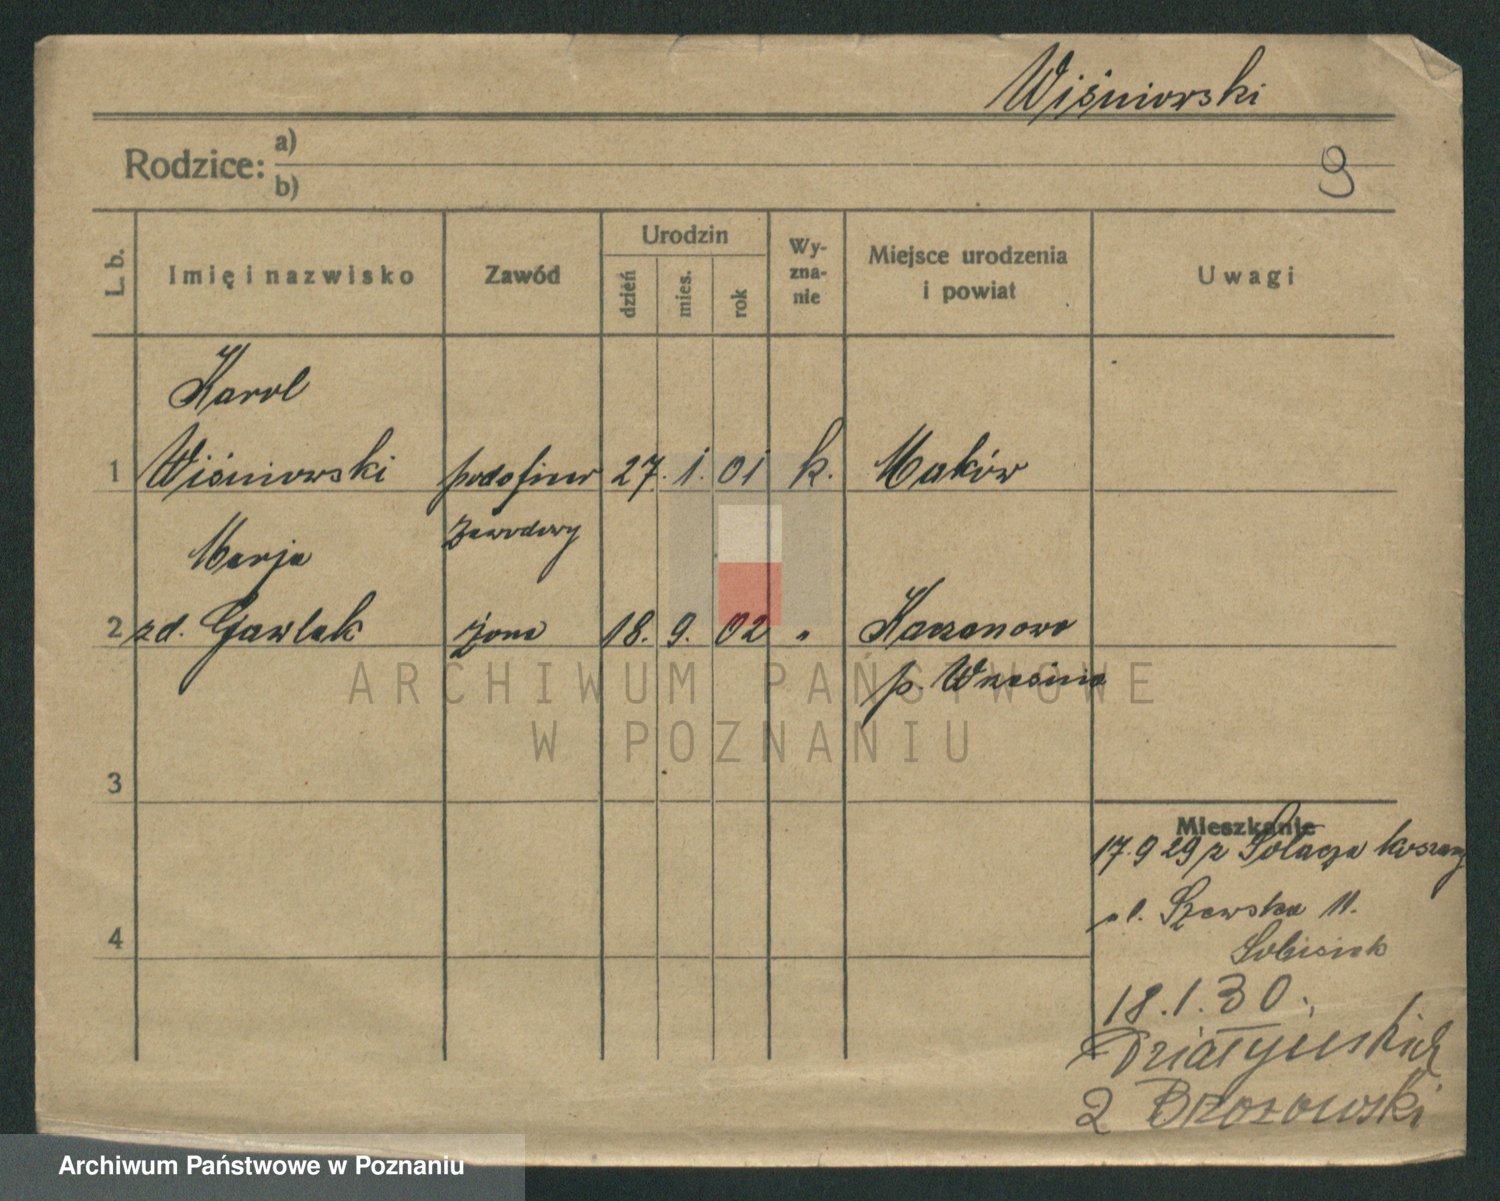 Wiśniowski
Rodzice: a)
b)
9
L. b.
Imię i nazwisko
Zawód
Urodzin
dzień
mies.
rok
Wy-
zna-
nie
Miejsce urodzenia
i powiat
Uwagi
Karol
1 Wiśniowski podoficer 27. 1. 01 k. Maków
zawodowy
Marja
2 zd. Gawlak żona 18. 9. 02 " Kaczanowo
p. Września
ARCHIWUM PAŃSTWOWE
W POZNANIU
3
Mieszkanie
17.9 29 z Sołacza koszary
ul. Szewska 11.
4
Sobisiak
18.1.30.
Działyńskich
2 Brzozowski
Archiwum Państwowe w Poznaniu